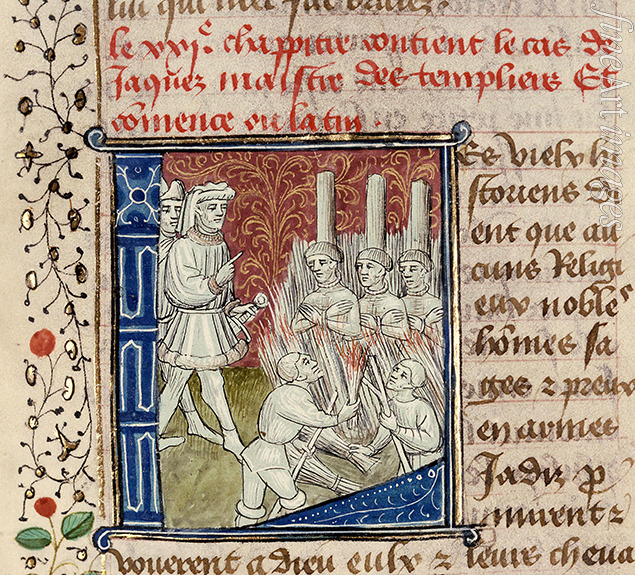 lui qui
Le xxi.e chappitre contient le cas de
Jaques maistre des templiers Et
comence ou latin.
Es vielx hi
storiens di
ent que au
cuns Religi
eux nobles
homes sa
ges z preux
en armes
Jadiz p
mirent z
vouerent a dieu eulx z leurs cheva
fineArtimages